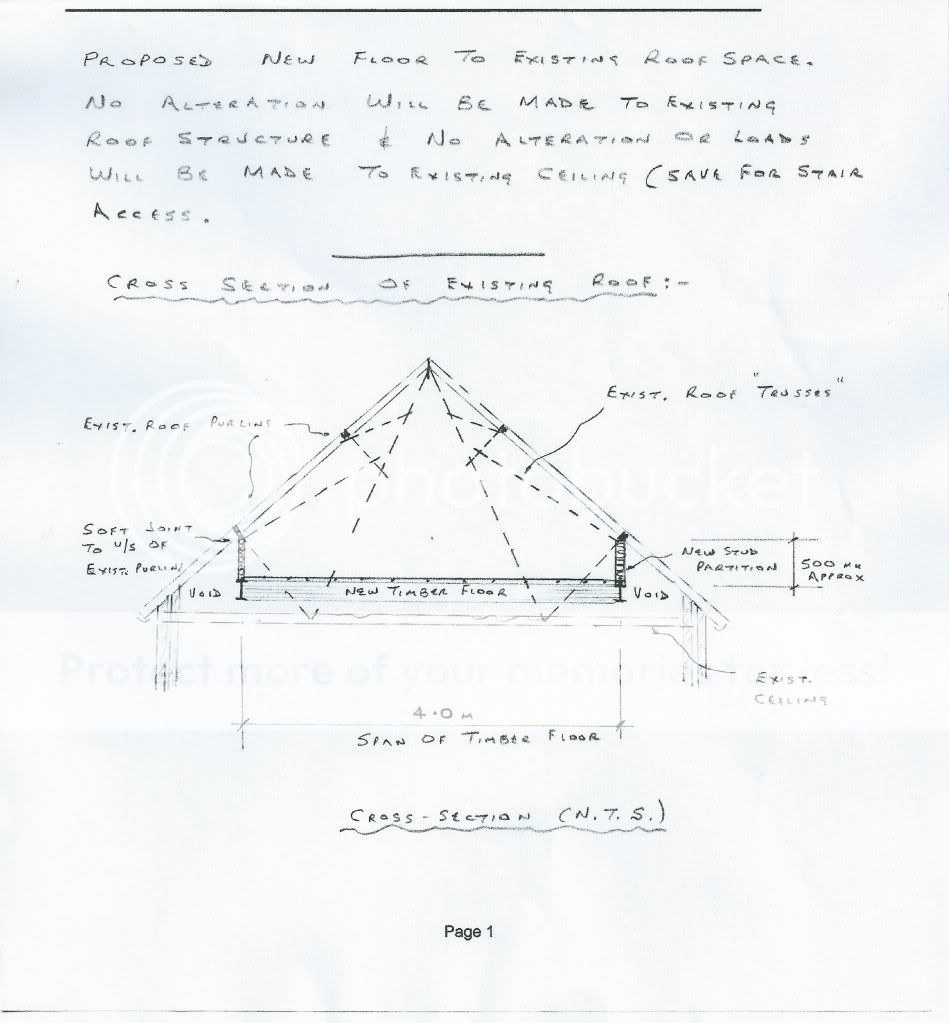 PROPOSED NEW FLOOR TO EXISTING ROOF SPACE.
NO ALTERATION WILL BE MADE TO EXISTING
ROOF STRUCTURE & NO ALTERATION OR LOADS
WILL BE MADE TO EXISTING CEILING (SAVE FOR STAIR
ACCESS.
CROSS SECTION OF EXISTING ROOF:-
EXIST. ROOF "TRUSSES"
EXIST. ROOF PURLINS
photobucket
SOFT JOINT
TO U/S OF
EXIST. PURLIN
NEW STUD
PARTITION
500 MM
APPROX
VOID
NEW TIMBER FLOOR
VOID
Protect more of your memories for less!
EXIST.
CEILING
4.0 M
SPAN OF TIMBER FLOOR
CROSS-SECTION (N.T.S.)
Page 1